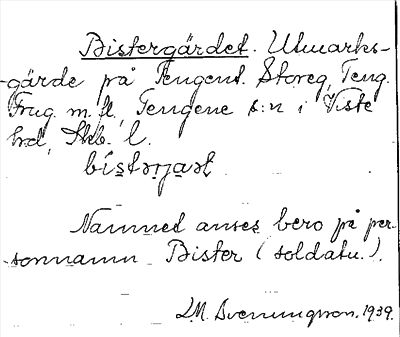 Bistergärdet. Utmarks-
-gärde på Tengent. Storeg, Teng.
Frug. m. fl., Tengene s:n i Viste
hd, Skb. l.
Namnet anses bero på per-
-sonnamn Bister (soldatn.).
L.M. Svenungsson. 1939.